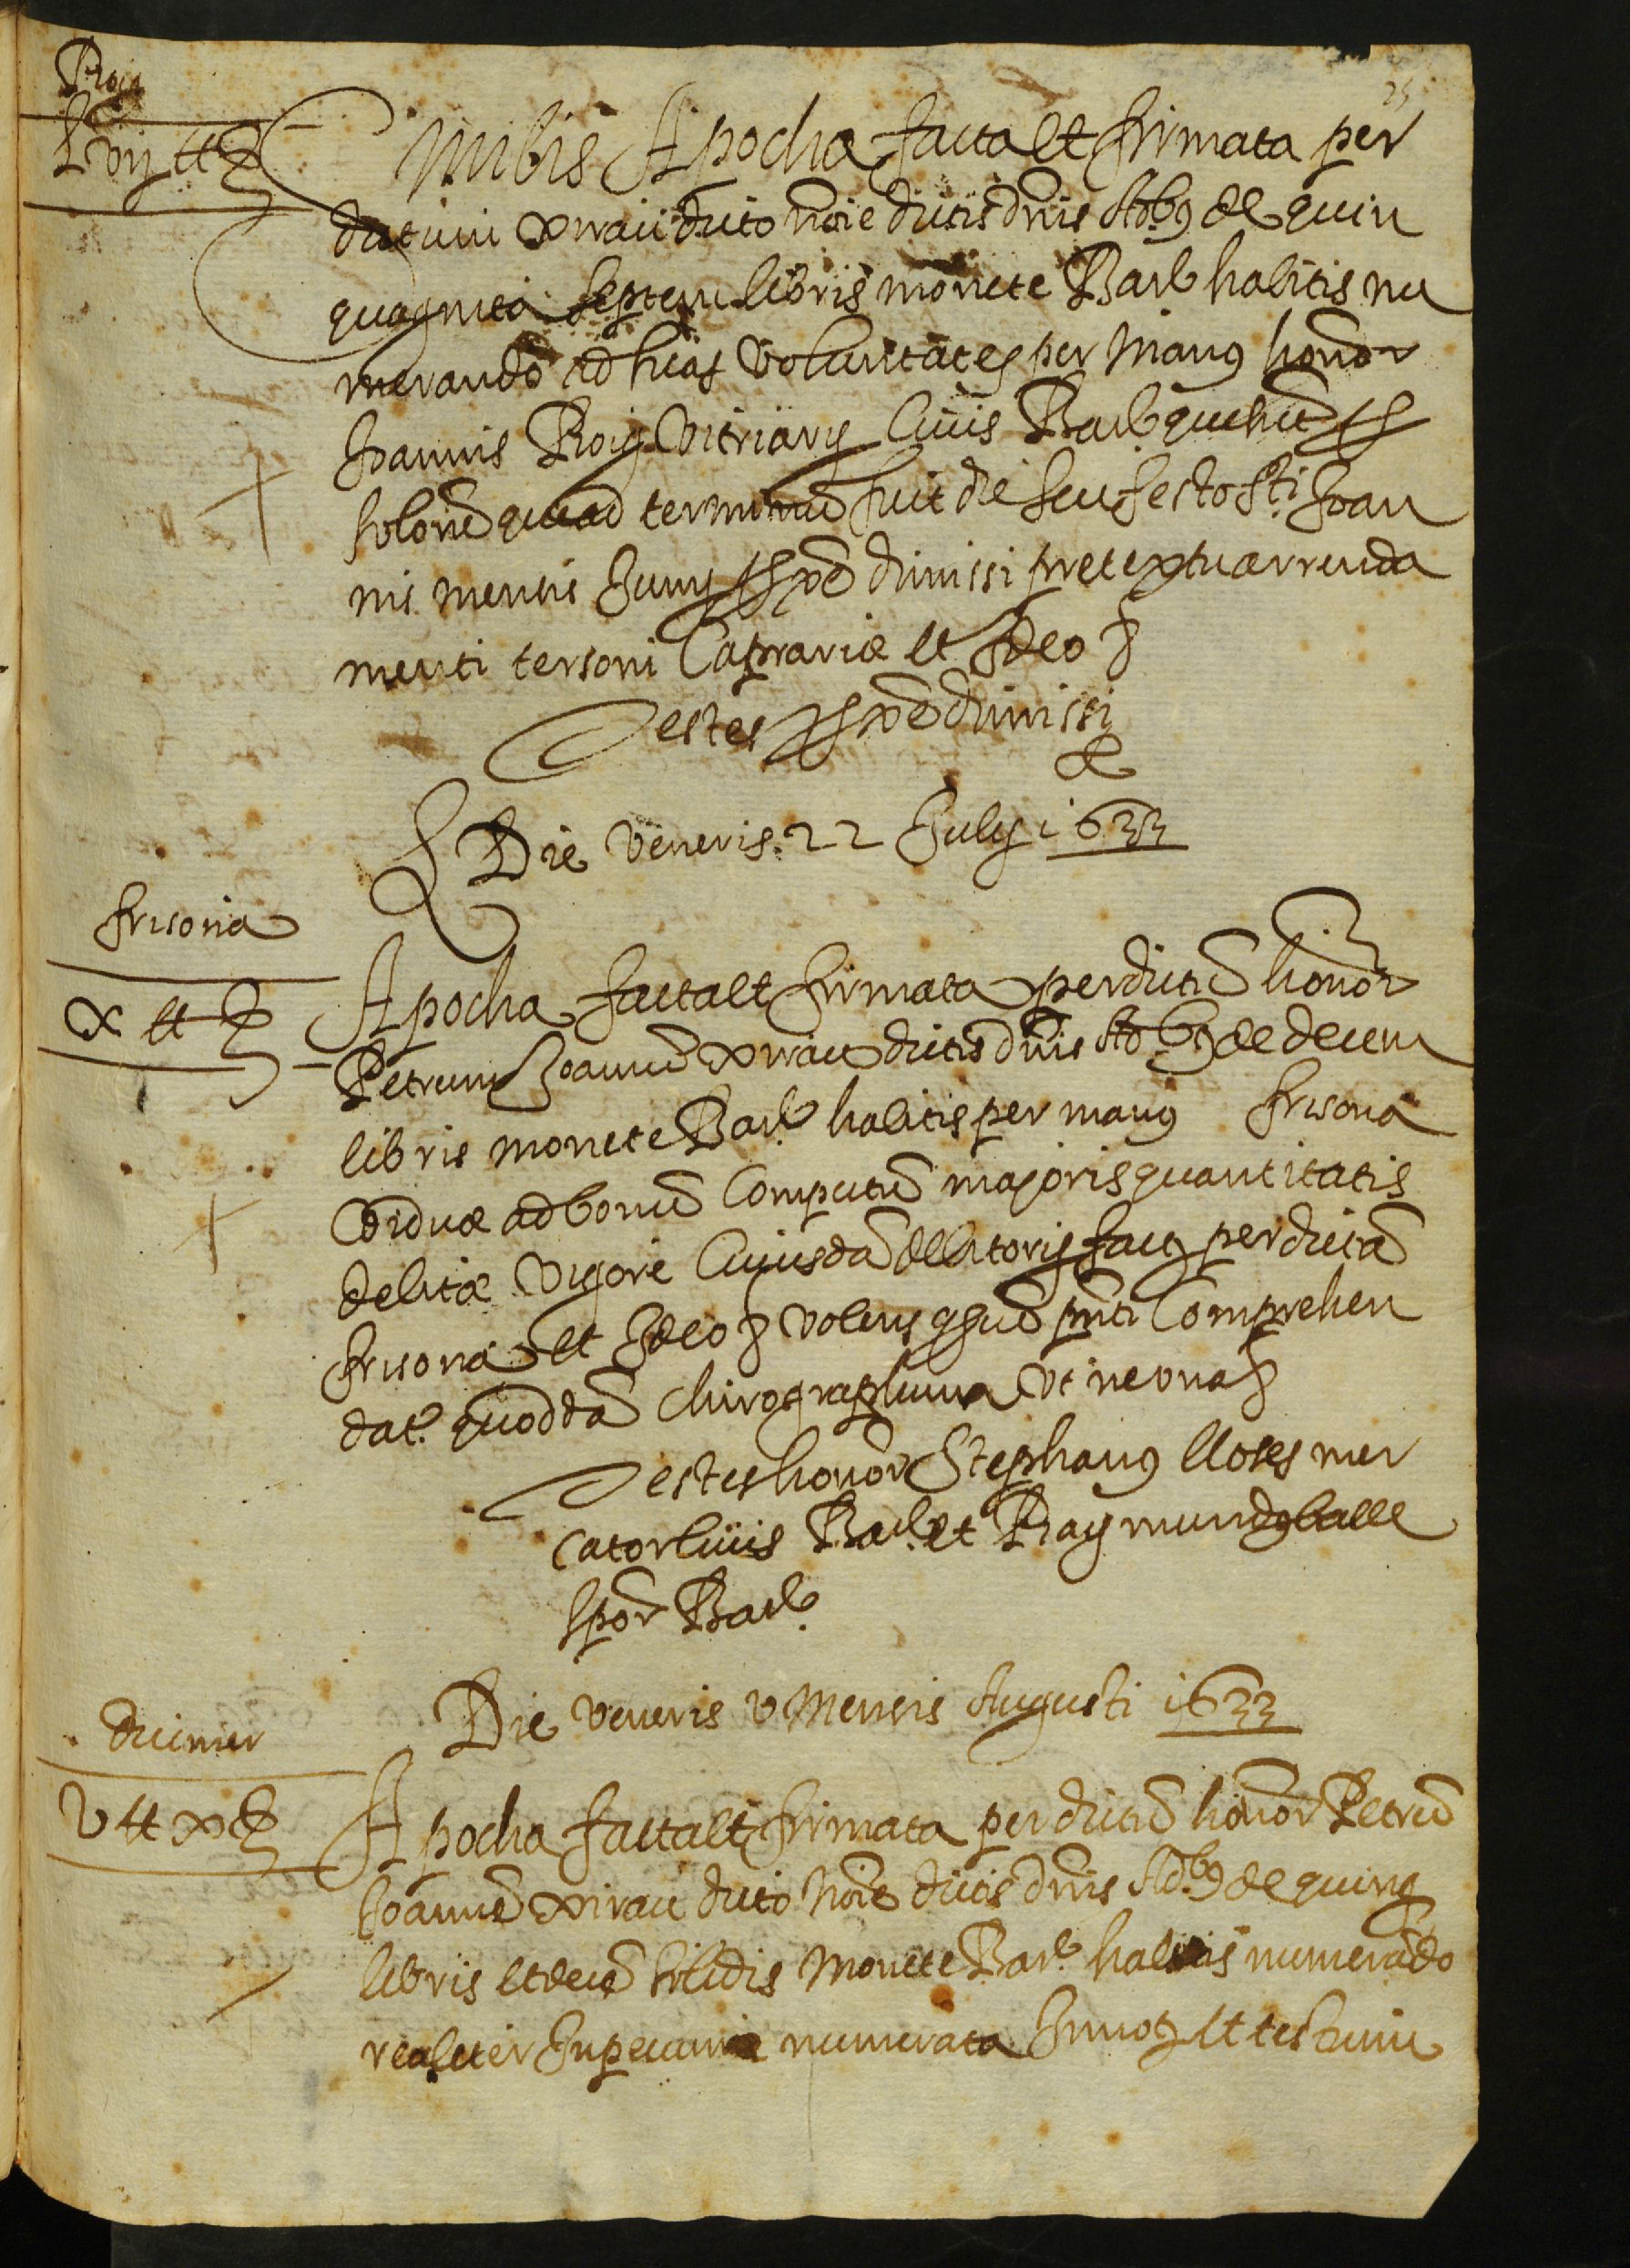 25
Roig
Lvij ℔ ß
Similis Apocha facta et firmata per
dictum Xirau dicto noīe dictis dn̄is Adb9 de quin
quaginta septem libris monete Barᵉ habitis nu
merando ad suas voluntates per manus honor
Joannis Roig vitriarij Civis Barᵉ
solone quead terminū fuit die seu festo Sti Joan
nis mensis Junij dimissi pretextu arrenda
menti tersoni Caprariæ et Ideo &
Testes dimissi
Die Veneris 22 July 1633
Frisona
X ℔ ß
Apocha facta et firmata per dictū honor
Petrum Joannē Xirau dictis dn̄is Adb9 de decem
libris monete Barᵉ habitis per manus Frisona
viduæ ad bonū computū majoris quantitatis
debitæ vigore Cujusdā debitorij facti per dictā
Frisona et Ideo & volens pn̄ti Comprehen
dat quoddā chirographum ut ne una &
Testes honor Stephanus lloses mer
cator civis Barᵉ et Raymundus balle
sp̄or Barᵉ
Die veneris v mensis Augusti 1633
V ℔ X ß
Apocha facta et firmata per dictū honor Petrū
Joannē Xirau dicto noīe dictis dn̄is Adb9 de quinq
libris et decē solidis monete Barᵉ habitis numerādo
realiter In pecunia numerata In not et testium